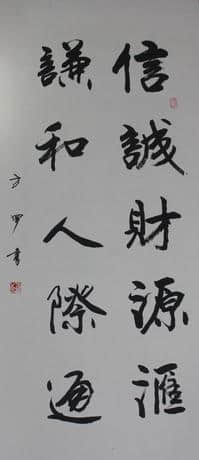 信誠財源滙
謙和人際通
方甲書